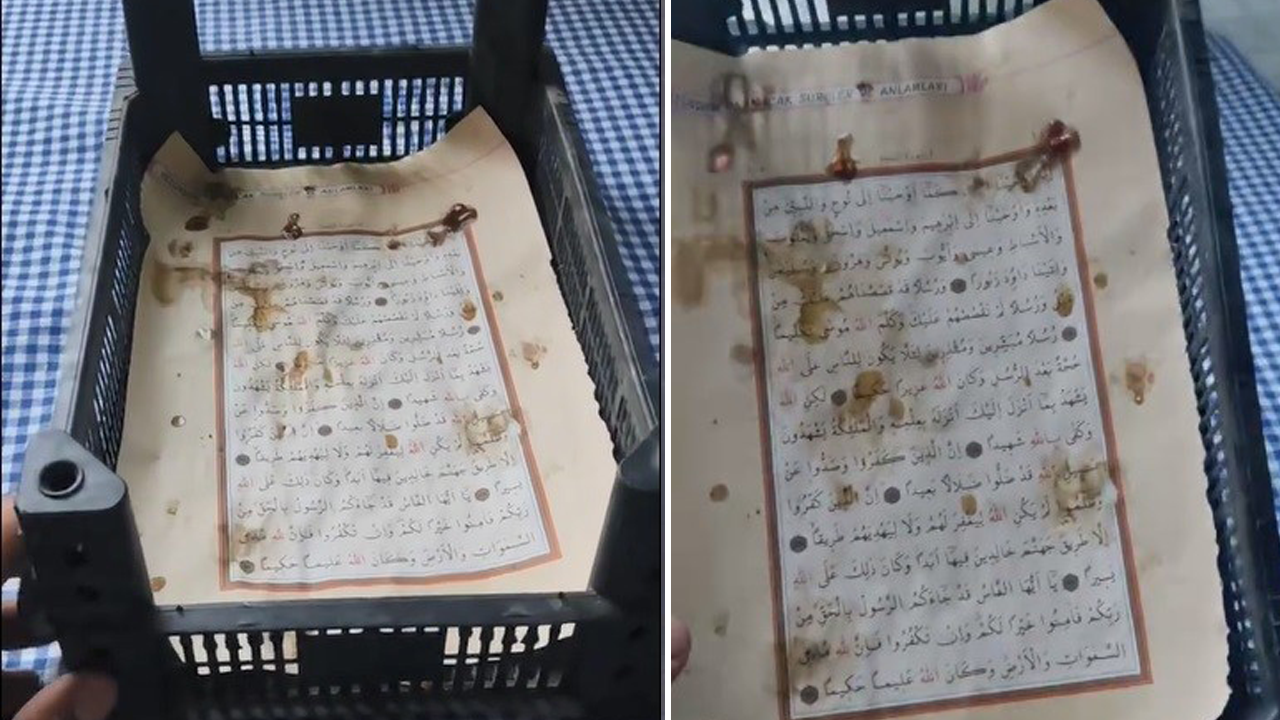 CAK SURELER VE ANLAMLARI
كَمَا اَوْحَيْنَا اِلٰى نُوحٍ وَالنَّبِيّنَ مِنْ
بَعْدِهِ وَاَوْحَيْنَا اِلٰى اِبْرٰهِيمَ وَاِسْمٰعِيلَ وَاِسْحٰقَ وَيَعْقُوبَ
وَالْاَسْبَاطِ وَعِيسٰى وَاَيُّوبَ وَيُونُسَ وَهٰرُونَ وَسُلَيْمٰنَ
وَاٰتَيْنَا دَاوُدَ زَبُوراً وَرُسُلاً قَدْ قَصَصْنَاهُمْ عَلَيْكَ مِنْ
وَرُسُلاً لَمْ نَقْصُصْهُمْ عَلَيْكَ وَكَلَّمَ اللّٰهُ مُوسٰى تَكْلِيماً
رُسُلاً مُبَشِّرِينَ وَمُنْذِرِينَ لِئَلَّا يَكُونَ لِلنَّاسِ عَلَى اللّٰهِ
حُجَّةٌ بَعْدَ الرُّسُلِ وَكَانَ اللّٰهُ عَزِيزاً حَكِيماً لٰكِنِ اللّٰهُ
يَشْهَدُ بِمَا اَنْزَلَ اِلَيْكَ اَنْزَلَهُ بِعِلْمِهِ وَالْمَلٰئِكَةُ يَشْهَدُونَ
وَكَفٰى بِاللّٰهِ شَهِيداً اِنَّ الَّذِينَ كَفَرُوا وَصَدُّوا عَنْ
سَبِيلِ اللّٰهِ قَدْ ضَلُّوا ضَلَالاً بَعِيداً اِنَّ الَّذِينَ كَفَرُوا
وَظَلَمُوا لَمْ يَكُنِ اللّٰهُ لِيَغْفِرَ لَهُمْ وَلَا لِيَهْدِيَهُمْ طَرِيقاً
اِلَّا طَرِيقَ جَهَنَّمَ خَالِدِينَ فِيهَا اَبَداً وَكَانَ ذٰلِكَ عَلَى اللّٰهِ
يَسِيراً يَا اَيُّهَا النَّاسُ قَدْ جَاءَكُمُ الرَّسُولُ بِالْحَقِّ مِنْ
رَبِّكُمْ فَاٰمِنُوا خَيْراً لَكُمْ وَاِنْ تَكْفُرُوا فَاِنَّ لِلّٰهِ مَا فِى
السَّمٰوَاتِ وَالْاَرْضِ وَكَانَ اللّٰهُ عَلِيماً حَكِيماً